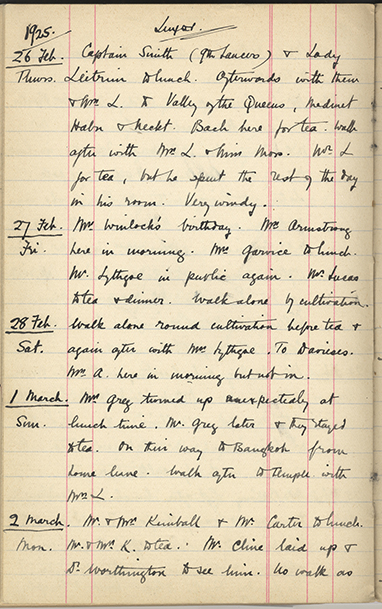 1925. Luxor.
26 Feb. Captain Smith (9th Lancers) & Lady
Thurs. Leitrim to lunch. Afterwards with them
& Mrs L. to Valley of the Queens, Medinet
Habu & Neckt. Back here for tea. Walk
after with Mrs L. & Miss Moss. Mr L
for tea, but he spent the rest of the day
in his room. Very windy.
27 Feb. Mrs Winlock's birthday. Mrs Armstrong
Fri. here in morning. Mrs Garvice to lunch.
Mr. Lythgoe in public again. Mr. Lucas
to tea & dinner. Walk alone by cultivation.
28 Feb. Walk alone round cultivation before tea &
Sat. again after with Mrs Lythgoe. To Davieses.
Mrs A. here in morning but not in.
1 March. Mrs Greg turned up unexpectedly at
Sun. lunch time. Mr. Greg later & they stayed
to tea. On their way to Bangkok from
home leave. Walk after to temple with
Mrs L.
2 March. Mr. & Mrs Kimball & Mr Carter to lunch.
Mon. Mr. & Mrs K. to tea. Mr. Cline laid up &
Dr Worthington to see him. No walk as